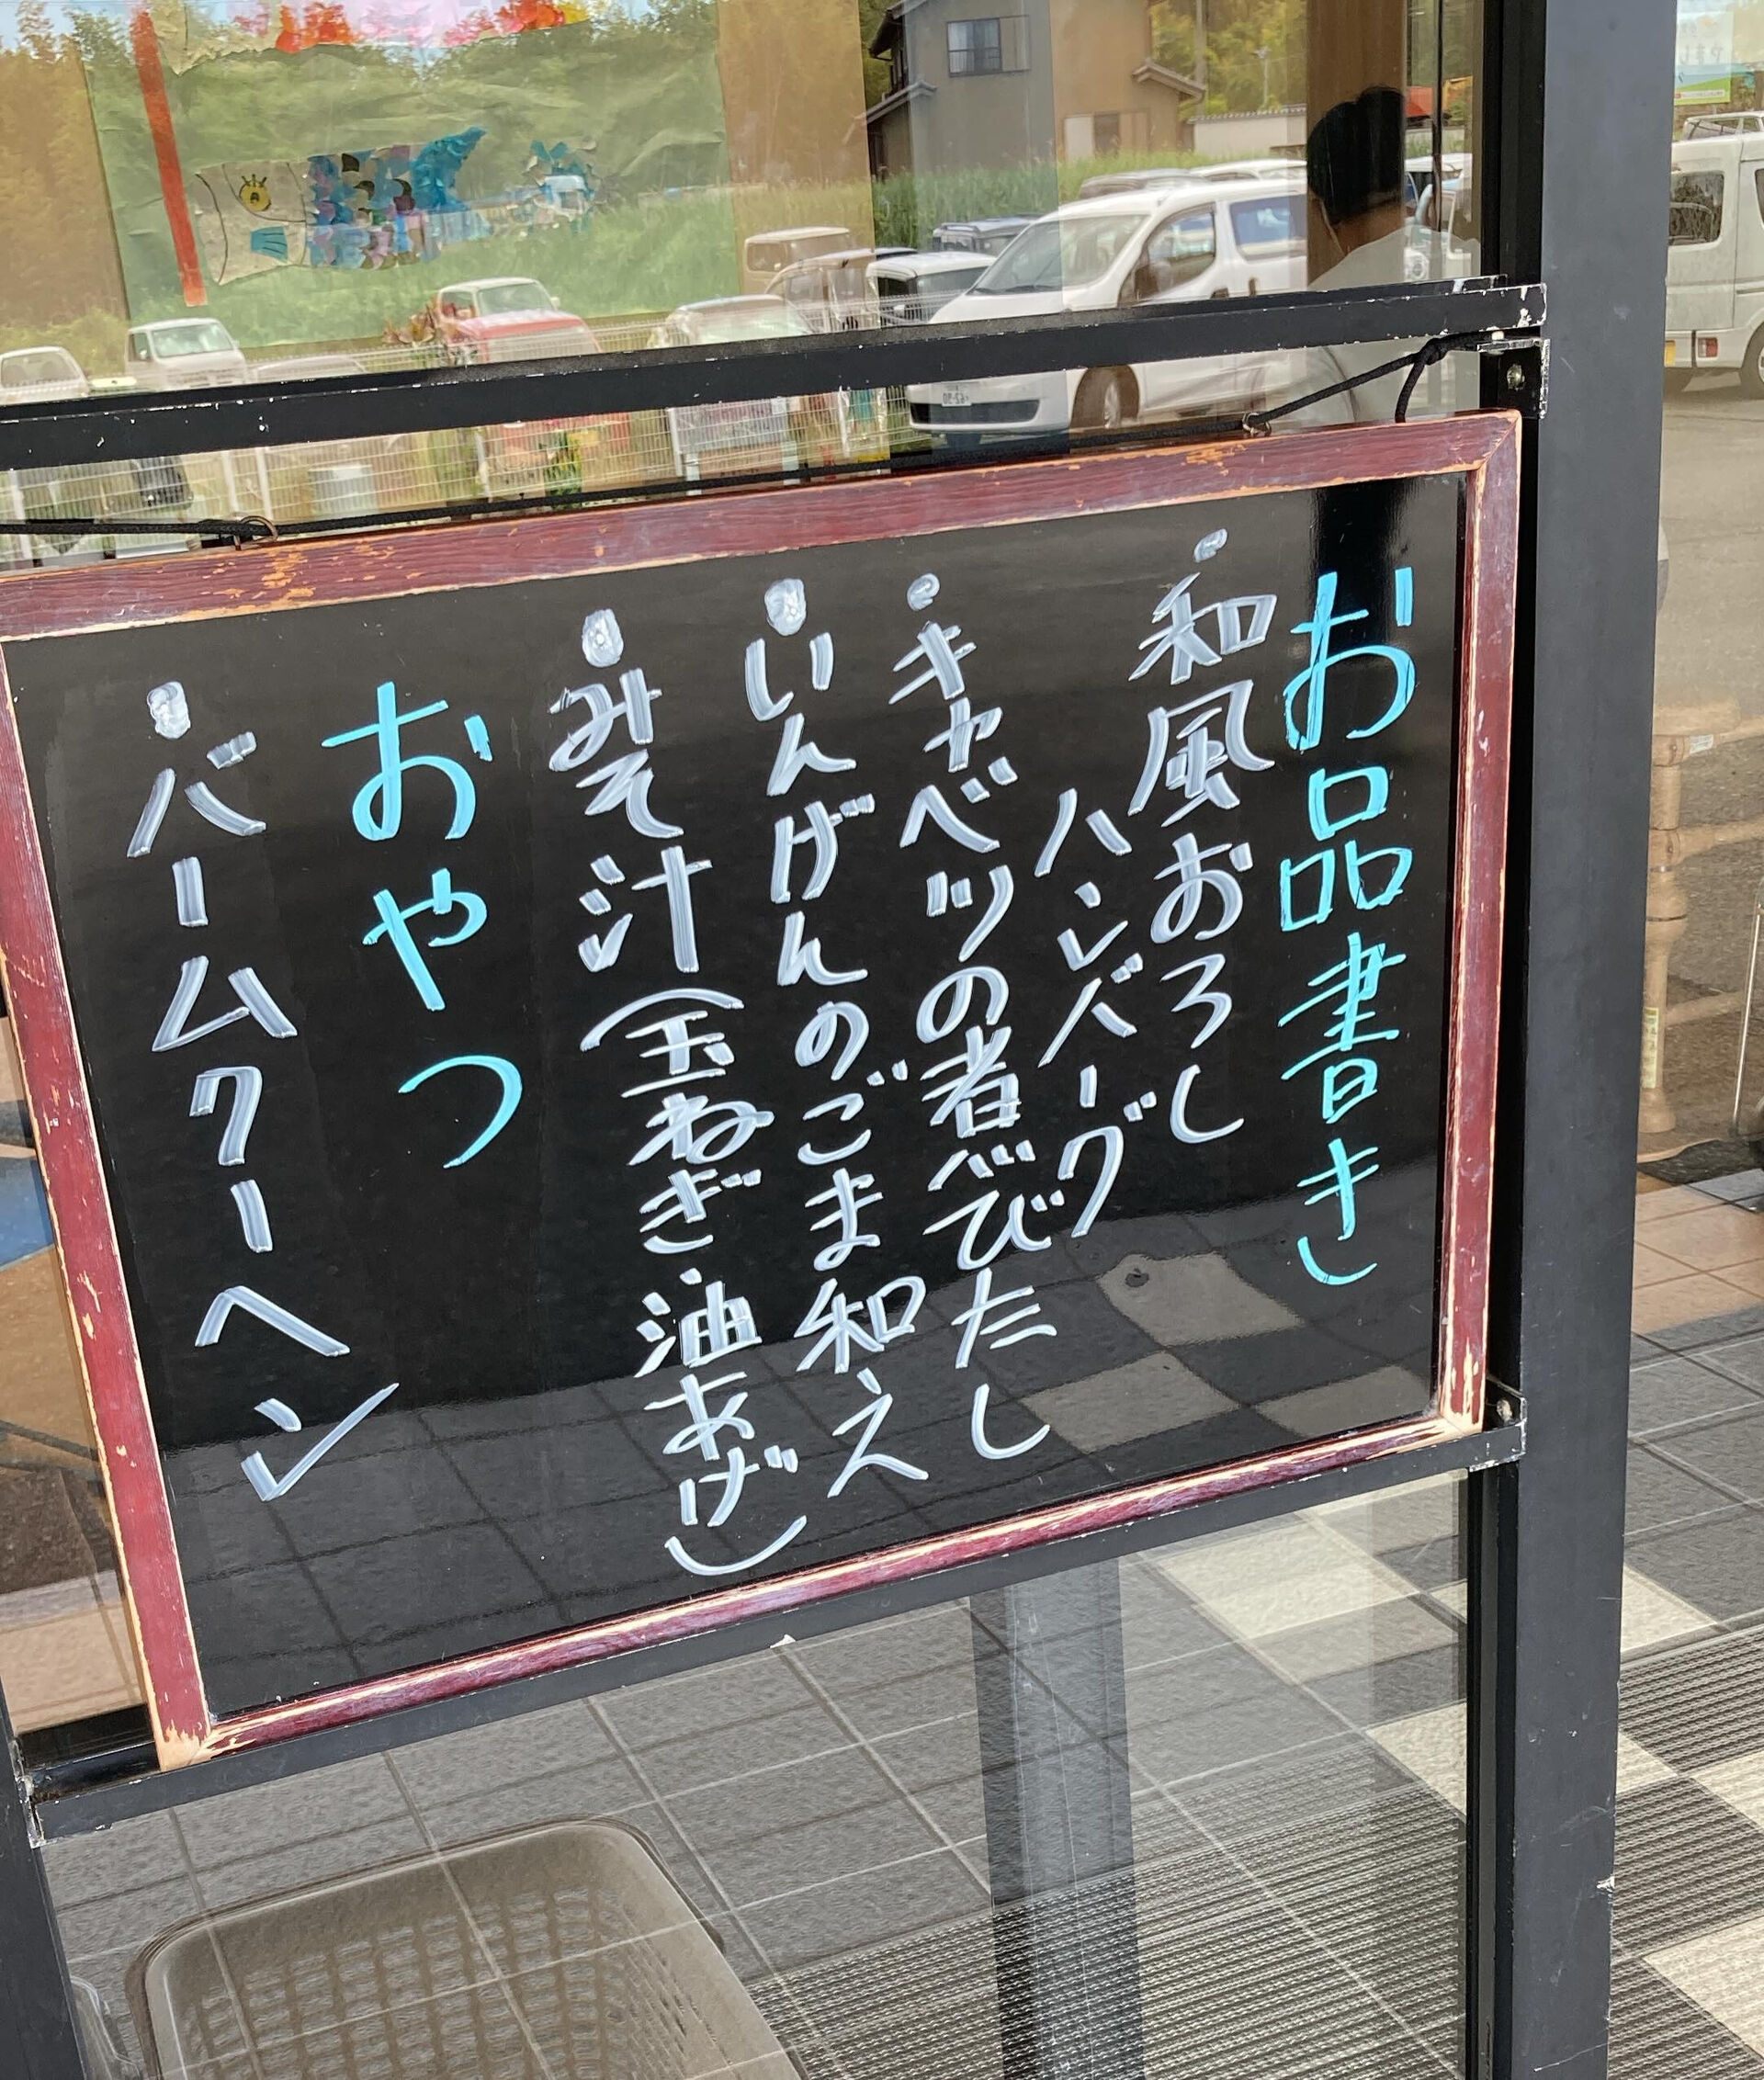 お品書き
・和風おろし
ハンバーグ
・キャベツの煮びたし
・いんげんのごま和え
・みそ汁(玉ねぎ油あげ)
おやつ
・バームクーヘン